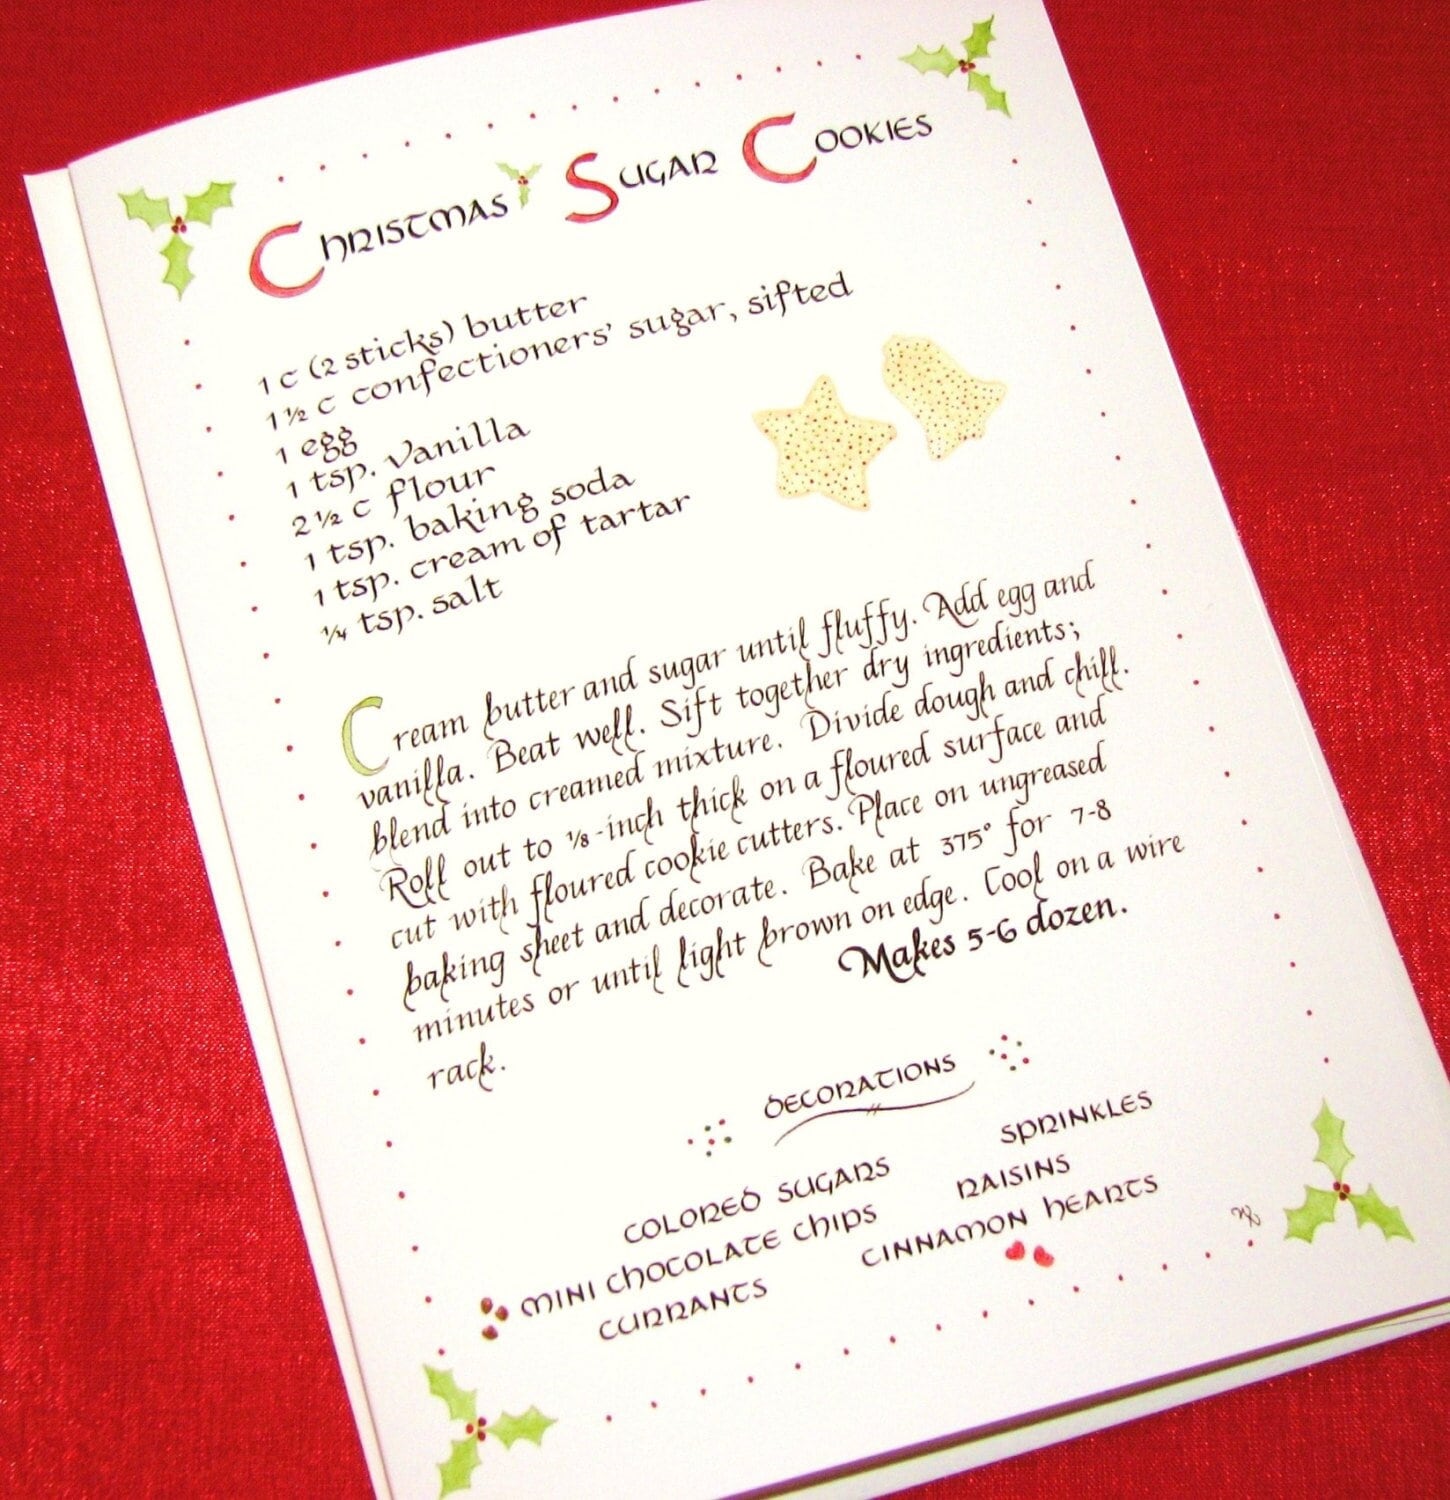 Christmas Sugar Cookies
1 c (2 sticks) butter
1 ½ c confectioners' sugar, sifted
1 egg
1 tsp. vanilla
2 ½ c flour
1 tsp. baking soda
1 tsp. cream of tartar
¼ tsp. salt
Cream butter and sugar until fluffy. Add egg and
vanilla. Beat well. Sift together dry ingredients;
blend into creamed mixture. Divide dough and chill.
Roll out to ⅛-inch thick on a floured surface and
cut with floured cookie cutters. Place on ungreased
baking sheet and decorate. Bake at 375° for 7-8
minutes or until light brown on edge. Cool on a wire
rack.
Makes 5-6 dozen.
Decorations
colored sugars
mini chocolate chips
currants
sprinkles
raisins
cinnamon hearts